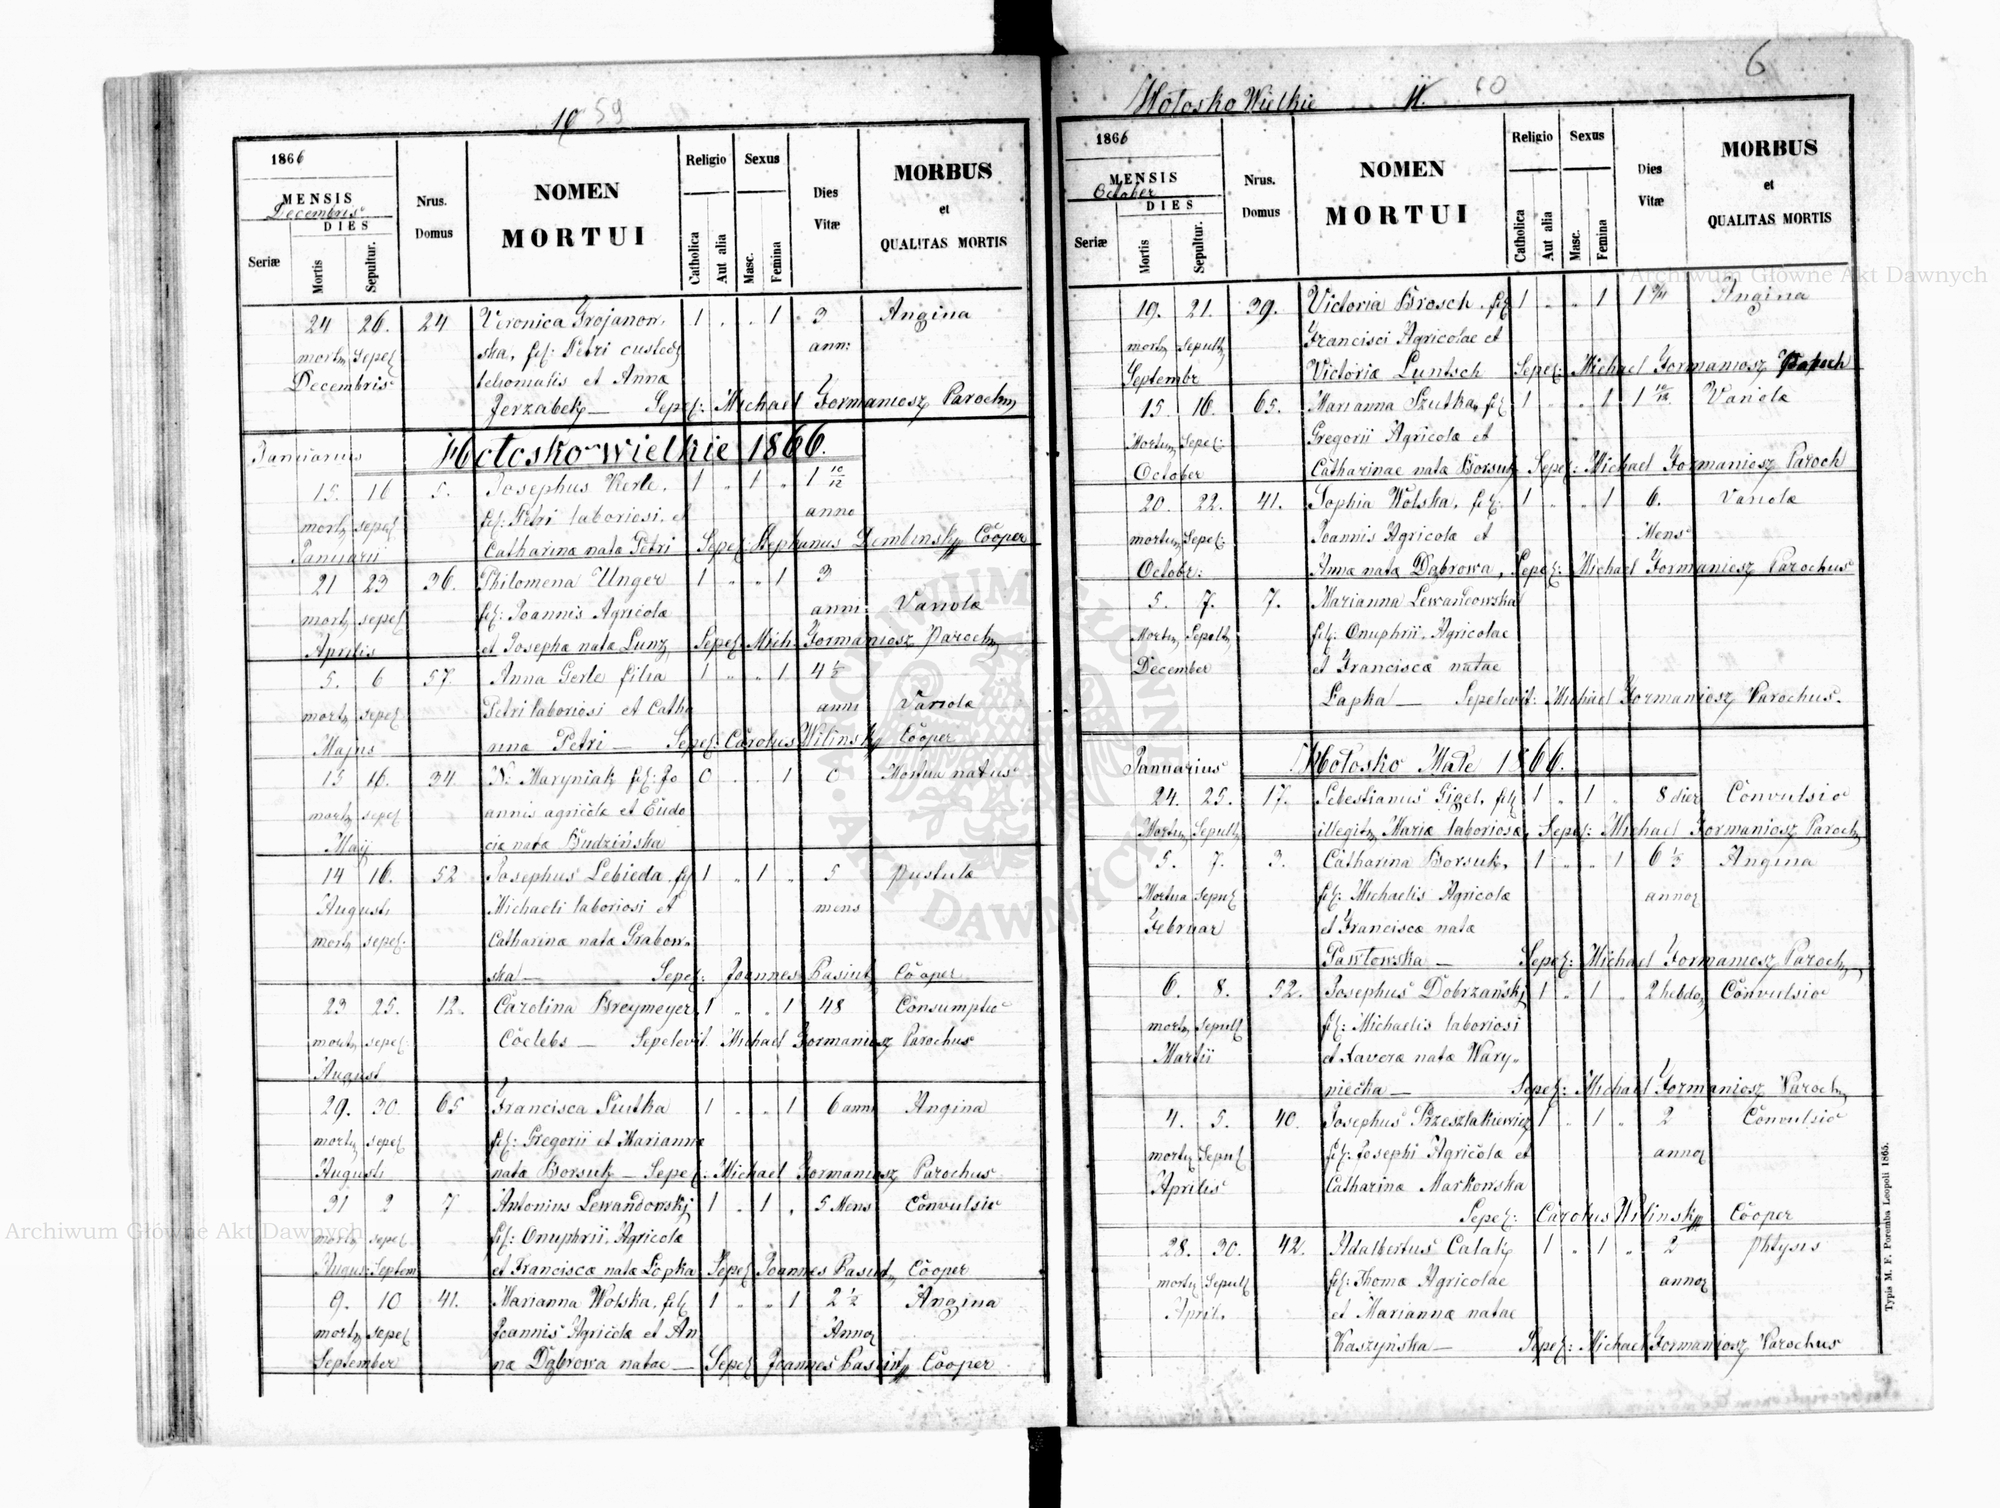 59
1866
MENSIS
Decembris
DIES
Seriæ
Mortis
Sepultur.
Nrus.
Domus
NOMEN
MORTUI
Religio
Catholica
Aut alia
Sexus
Masc.
Femina
Dies
Vitæ
MORBUS
et
QUALITAS MORTIS
24 26. 24 Veronica Grojanow, 1 „ „ 1 3 Angina
mort, sepel ska, fil: Petri custod ann:
Decembris telioniatis et Annæ
Jerzabek — Sepel: Michael Formaniosz Paroch
Januarius Hołosko wielkie 1866.
15. 16 5. Josephus Kerle, 1 „ 1 „ 1 10/12
mort, sepel fil: Petri laboriosi, et anno
Januarii Catharinæ nata Petri Sepel: Stephanus Dembinsky Cooper
21 23 36. Philomena Unger 1 „ „ 1 3
mort, sepel fil: Joannis Agricolæ anni Variolæ
Aprilis et Josepha nata Lunz Sepel Mich. Formaniosz Paroch
5. 6 57. Anna Gerle filia 1 „ „ 1 4 1/2
mort, sepel Petri laboriosi et Catha anni Variolæ
Majus rina Petri — Sepel: Carolus Wilinsky Cooper
15 16. 34. N: Maryniak fil: Jo 0 „ „ 1 0 Mortua natus
mort, sepel annis agricolæ et Eudo
Maij ciæ nata Budzińska
14 16. 52 Josephus Lebieda, fil 1 „ 1 „ 5 Pustulæ
Augusti Michaeli laboriosi et mens
mort, sepel. Catharinæ nata Grabow-
ska — Sepel: Joannes Basiut, Cooper
23 25. 12. Carolina Breymeyer, 1 „ „ 1 48 Consumptio
mort, sepel. Coelebs — Sepelevit Michael Formaniosz Parochus
August
29. 30. 65 Francisca Szutka 1 „ „ 1 6 anni Angina
mort, sepel fil: Gregorii et Mariannæ
Augusti nata Borsuk — Sepel: Michael Formaniosz Parochus
31 2 7 Antonius Lewandowski 1 „ 1 „ 5 Mens Convulsio
mort, sepel. fil: Onuphrii, Agricolæ
August: Septem et Franciscæ nata Łopka Sepel Joannes Basiut, Cooper
9. 10 41. Marianna Wolska, fil 1 „ „ 1 2 1/2 Angina
mort, sepel Joannis Agricolæ et An Annor
September næ Dąbrowa natae — Sepel Joannes Basiut Cooper
6
Hołosko Wielkie 11. 60
1866
MENSIS
October
DIES
Seriæ
Mortis
Sepultur.
Nrus.
Domus
NOMEN
MORTUI
Religio
Catholica
Aut alia
Sexus
Masc.
Femina
Dies
Vitæ
MORBUS
et
QUALITAS MORTIS
19. 21. 39. Victoria Brosch, fil 1 „ „ 1 Angina
mort, Sepult, Francisci Agricolae et
Septembr Victoriæ Luntsch Sepel: Michael Formaniosz Paroch
15. 16. 65. Marianna Szutka, fil 1 „ „ 1 1 10/12 Variolæ
Mortu, Sepel: Gregorii Agricolæ et
October Catharinae natæ Borsuk Sepel: Michael Formaniosz Paroch
20. 22. 41. Sophia Wolska, fil: 1 „ „ 1 6. Variolæ
mortu, Sepel: Joannis Agricolæ et Mens
October: Annæ nata Dąbrowa, Sepel: Michael Formaniosz Parochus
5. 7. 7. Marianna Lewańcowska
Mortu, Sepult, fil: Onuphrii, Agricolae
December et Franciscæ natae
Łapka — Sepelevit: Michael Formaniosz Parochus.
Januarius Hołosko Małe 1866.
24. 25. 17. Sebestianus Gigel, fil 1 „ 1 „ 8 dier Convulsio
Mortu, Sepult, illegit, Mariæ laboriosæ, Sepel: Michael Formaniosz Paroch,
5. 7. 3. Catharina Borsuk, 1 „ „ 1 6 1/2 Angina
Mortua Sepul fil: Michaelis Agricolæ annor
Februar et Franciscæ nata
Pawłowska — Sepel: Michael Formaniosz Paroch,
6. 8. 52. Josephus Dobrzański 1 „ 1 „ 2 hebdo, Convulsio
mort, Sepult fil: Michaelis laboriosi
Martii et Xaveræ nata Wary-
niecka — Sepel: Michael Formaniosz Paroch,
4. 5. 40. Josephus Przeszlakiewicz 1 „ 1 „ 2 Convulsio
mortu, Sepul fil: Josephi Agricolæ et annor
Aprilis Catharinæ Markowska
Sepel: Carolus Wilinsky Cooper
28. 30. 42. Adalbertus Całak, 1 „ 1 „ 2 Phtysis
mortu, Sepult fil: Thomæ Agricolae annor
April. et Mariannæ natae
Kaszyńska — Sepel: Michael Formaniosz Parochus
Typis M. F. Poremba Leopoli 1865.
Archiwum Główne Akt Dawnych
Archiwum Główne Akt Dawnych
ARCHIWUM GŁÓWNE AKT DAWNYCH